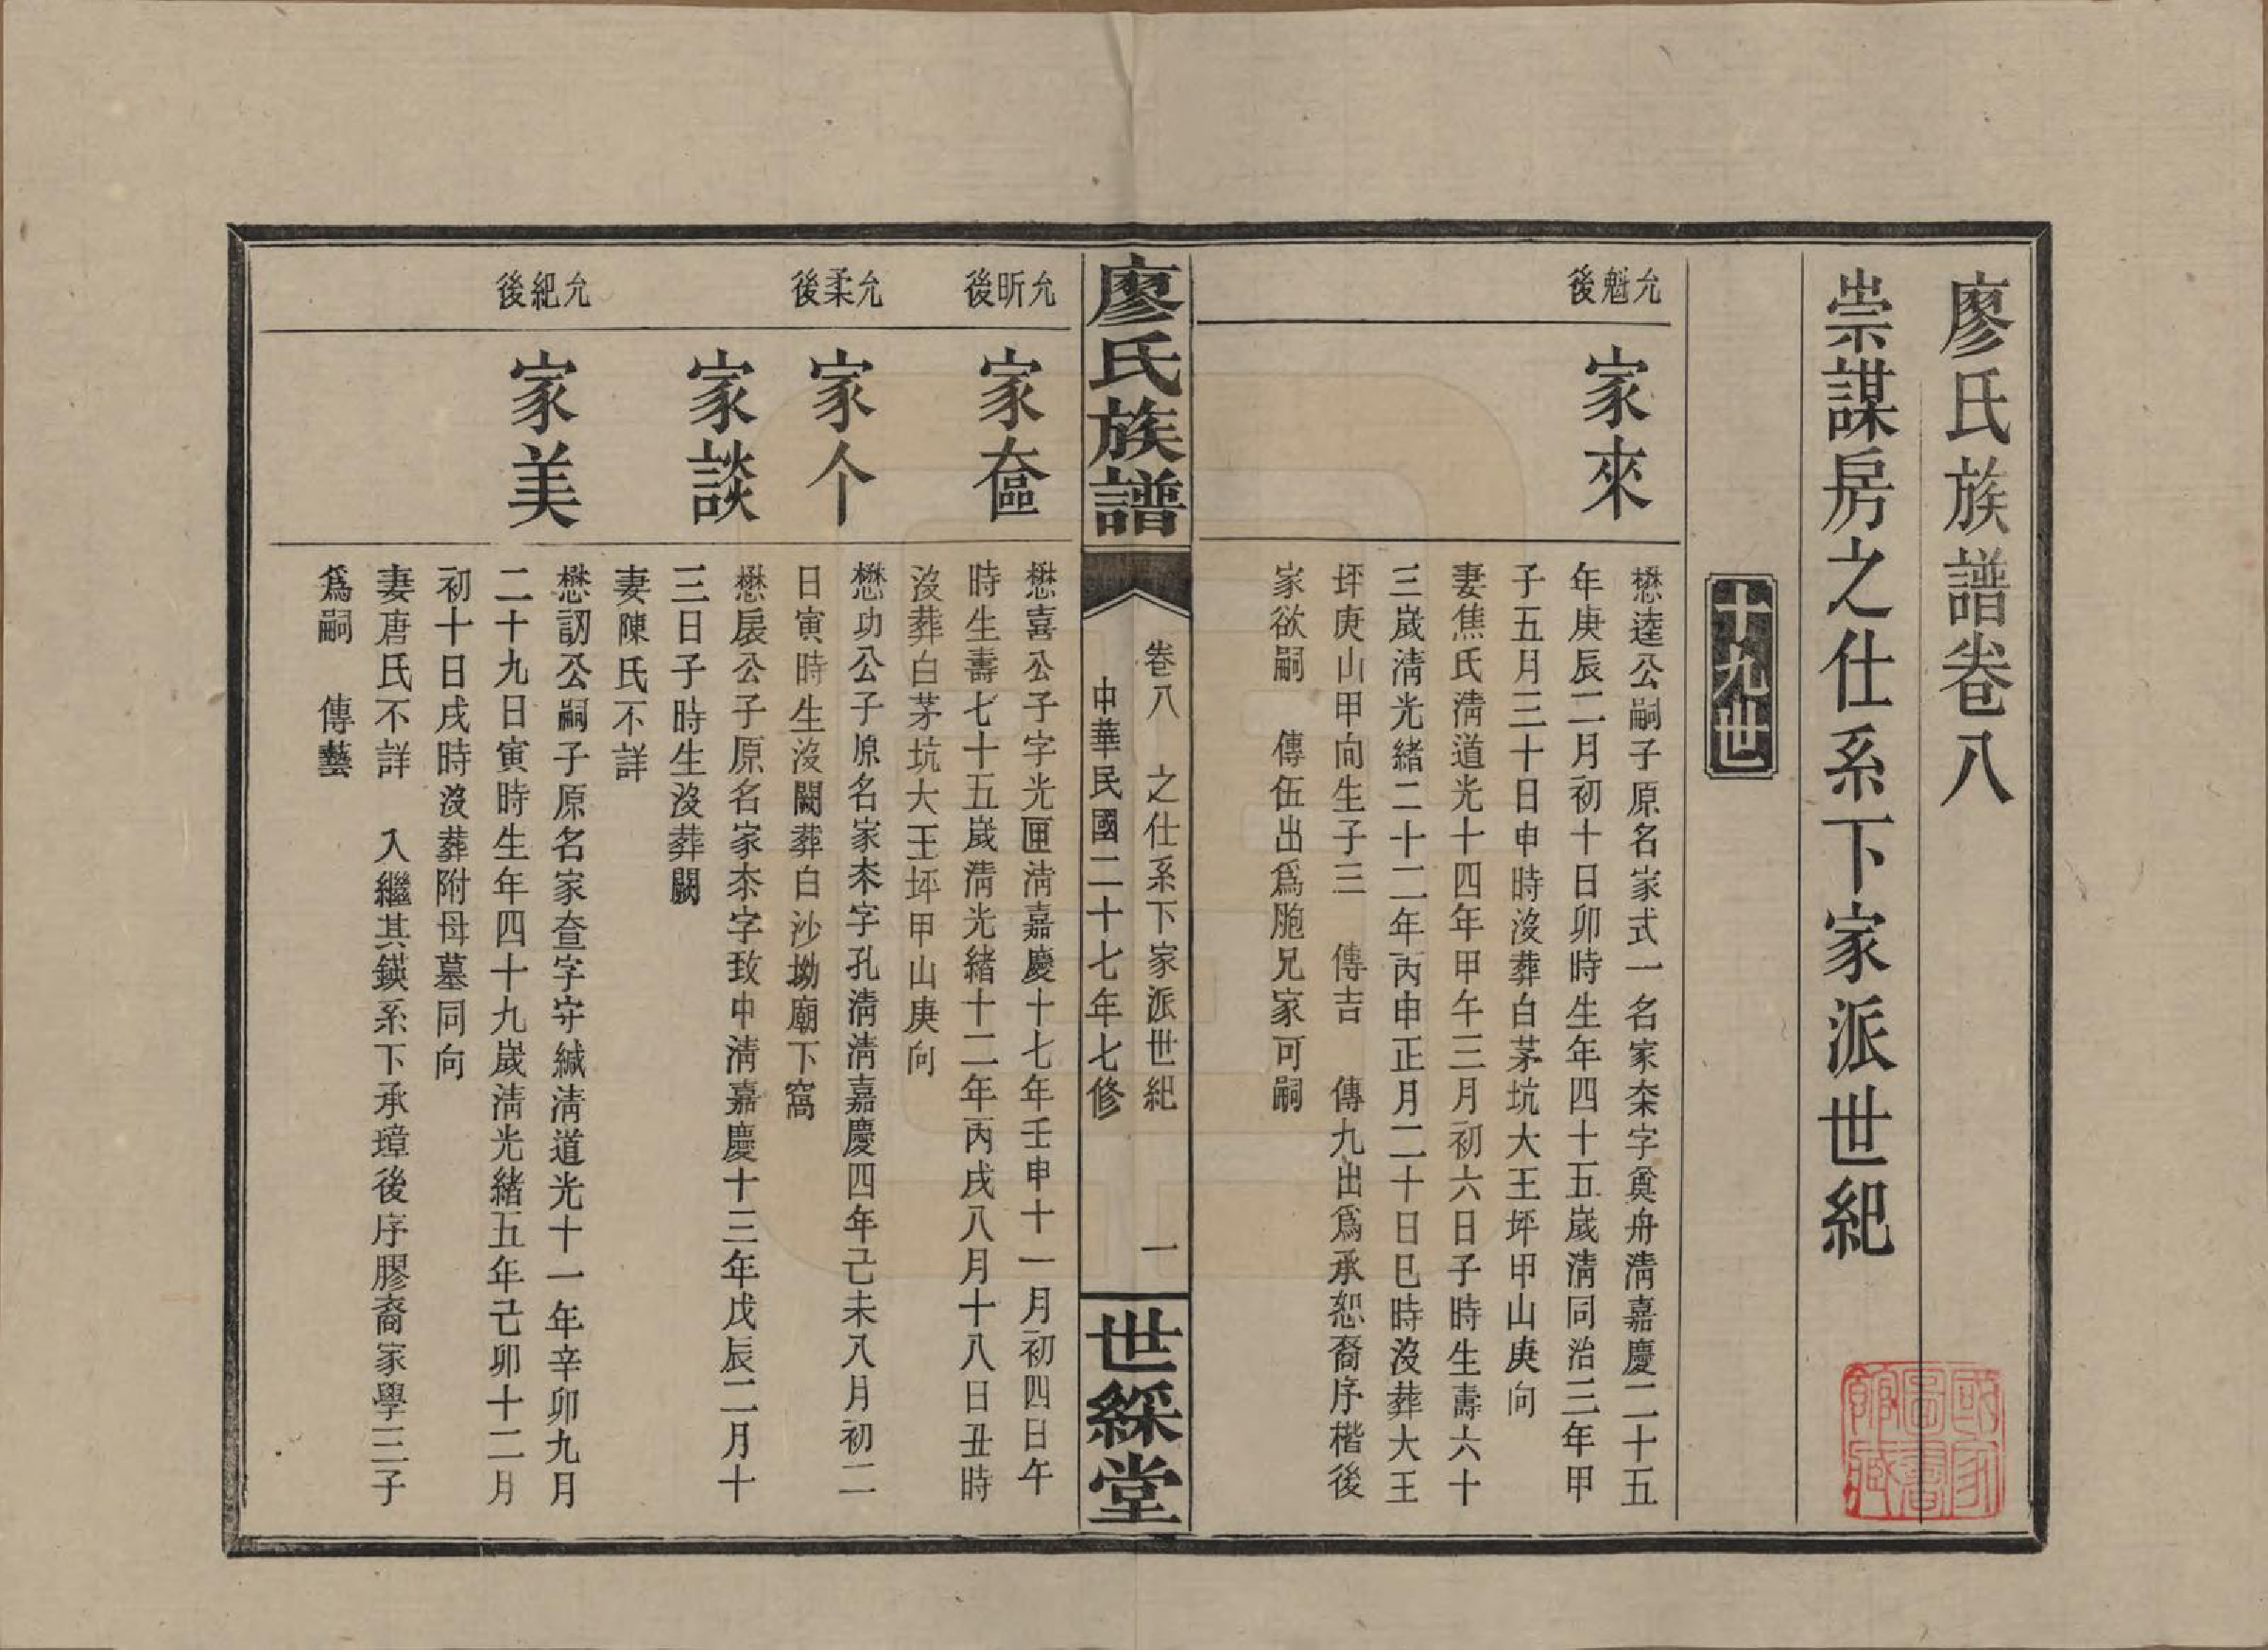 廖氏族譜卷八
崇謀房之仕系下家派世紀
十九世
允魁後
家來
懋逵公嗣子原名家式一名家桼字奠舟淸嘉慶二十五
年庚辰二月初十日卯時生年四十五嵗淸同治三年甲
子五月三十日申時沒葬白茅坑大王坪甲山庚向
妻焦氏淸道光十四年甲午三月初六日子時生壽六十
三嵗淸光緒二十二年丙申正月二十日巳時沒葬大王
坪庚山甲向生子三　傳吉　傳九出爲承恕裔序楷後
家欲嗣　傳伍出爲胞兄家可嗣
廖氏族譜
卷八　之仕系下家派世紀　一
中華民國二十七年七修
世綵堂
允昕後
家奩
懋喜公子字光匣淸嘉慶十七年壬申十一月初四日午
時生壽七十五嵗淸光緒十二年丙戌八月十八日丑時
沒葬白茅坑大王坪甲山庚向
允柔後
家个
懋功公子原名家木字孔淸淸嘉慶四年己未八月初二
日寅時生沒闕葬白沙坳廟下窩
家談
懋扆公子原名家夲字致中淸嘉慶十三年戊辰二月十
三日子時生沒葬闕
妻陳氏不詳
允紀後
家美
懋訒公嗣子原名家查字守緘淸道光十一年辛卯九月
二十九日寅時生年四十九嵗淸光緒五年己卯十二月
初十日戌時沒葬附母墓同向
妻唐氏不詳　入繼其鍈系下承璋後序膠裔家學三子
爲嗣　傳藝
國家圖書館藏